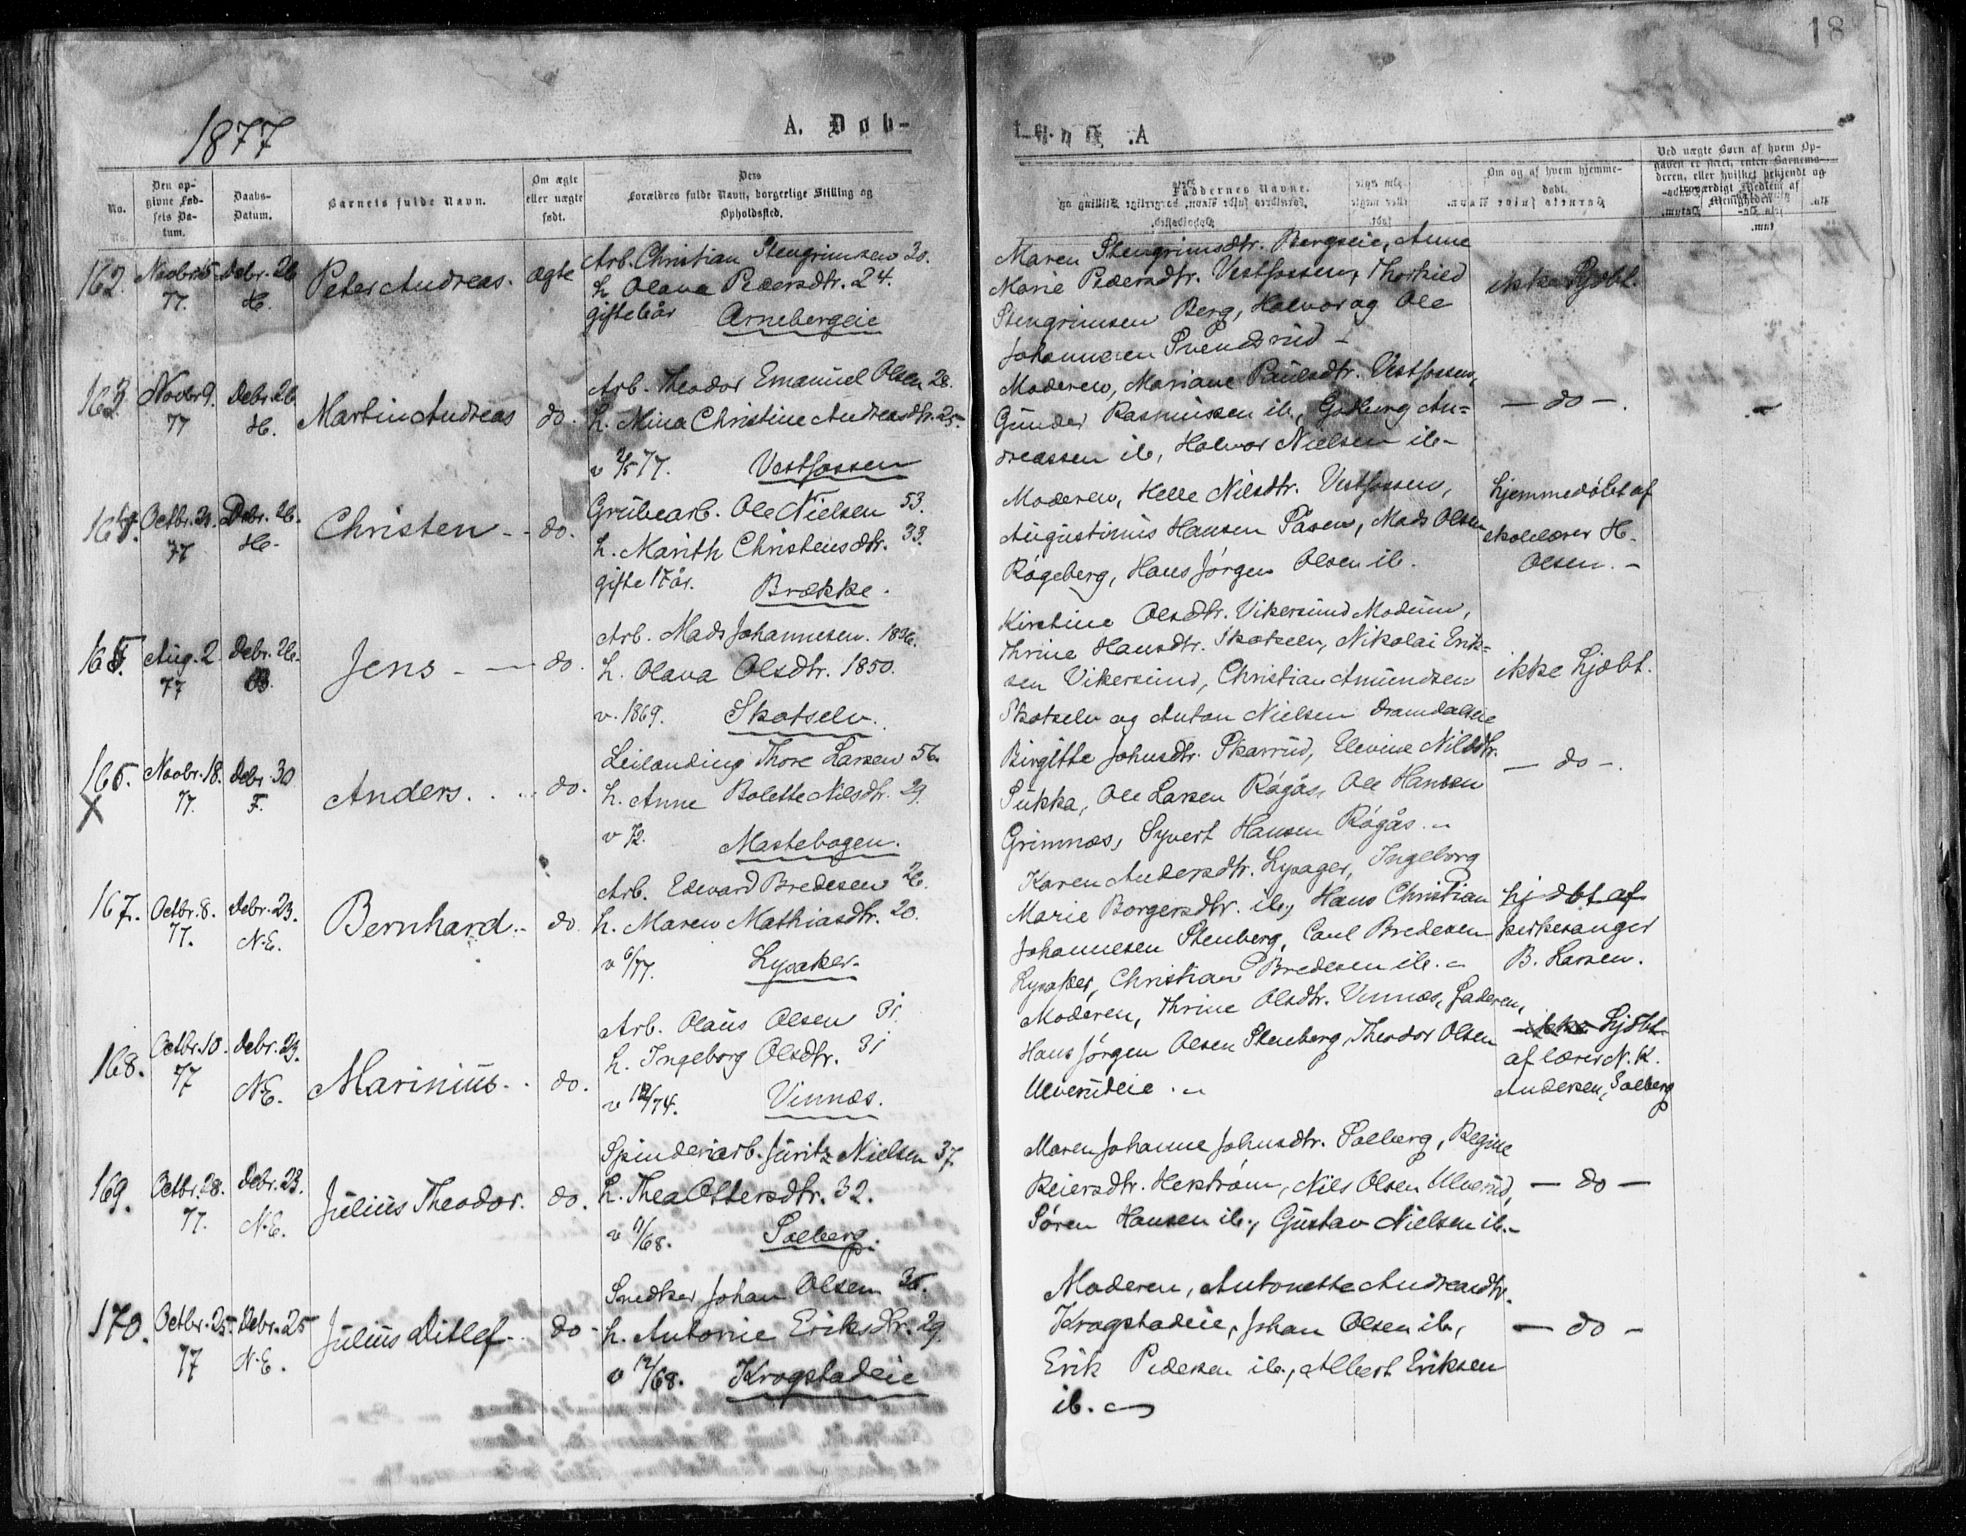 18
1877
A. Døb-
No.
Den op-
givne Fød-
sels Da-
tum.
Daabs-
Datum.
Barnets fulde Navn.
Om ægte
eller uægte
født.
Dets
Forældres fulde Navn, borgerlige Stilling og
Opholdssted.
Faddernes Navne.
Om og af hvem hjemme-
døbt.
Ved uægte Børn af hvem Op-
gaven er skeet, enten Barnemo-
deren, eller hvilket bekjendt og
troværdigt Medlem af
Menigheden.
162. Novbr. 15. Debr. 26 Peter Andreas. ægte
77. H.
Arb. Christian Stengrimsen 30.
h. Olava Pedersdtr. 24.
gifte 6 år Arnebergeie
Maren Stengrimsdtr. Bergseie, Anne
Marie Pedersdtr. Vestfossen, Thorkild
Stengrimsen Berg, Halvor og Ole
Johannesen Svendsrud -
ikke hjdbt.
163 Novbr 9. Debr. 26 Martin Andreas do.
77 H.
Arb. Theodor Emanuel Olsen 28.
h. Mina Christine Andreasdtr. 25.
v 2/5 77. Vestfossen
Moderen, Mariane Paulsdtr. Vestfossen,
Gunder Rasmussen ib., Golburg An=
dreassen ib, Halvor Nielsen ib-
- do -.
164. Octbr. 21. Debr. 26. Christen - do.
77 H.
Grubearb. Ole Nielsen 53.
h. Marith Christensdtr. 33.
gifte 17 år. Brække.
Moderen, Helle Nilsdtr. Vestfossen,
Augustinus Hansen Såsen, Mads Olsen
Røgeberg, Hans Jørgen Olsen ib.
hjemmedøbt af
skolelærer H.
Olsen. -
165. Aug. 2 Debr. 26. Jens - do.
77
Arb. Mads Johannesen. 1836.
h. Olava Olsdtr. 1850.
v. 1869. Skotselv.
Kirstine Olsdtr. Vikersund Modum,
Thrine Hansdtr. Skotselv, Nikolai Erik-
sen Vikersund, Christian Amundsen
Skotselv og Anton Nielsen Dramdalseie
ikke hjdbt.
165. Novbr. 18. Debr. 30 Anders. do.
X 77. F.
Leilænding Thore Larsen 56.
h. Anne Bolette Nilsdtr. 29.
v 72. Mastebogen.
Birgitte Johnsdtr. Skarrud, Elevine Nilsdtr.
Sukka, Ole Larsen Røgås, Ole Hansen
Grimnæs, Syvert Hansen Røgås. -
- do -.
167. Octbr. 8. Debr. 23. Bernhard. do.
77. N.E.
Arb. Edward Bredesen 26.
h. Maren Mathiasdtr. 20.
v 6/77. Lysaker.
Karen Andersdtr. Lysager, Ingeborg
Marie Borgersdtr. ib., Hans Christian
Johannesen Stenberg, Carl Bredesen
Lysaker, Christian Bredesen ib. -
hjdbt af
kirkesanger
B. Larsen.
168. Octbr. 10. Debr. 23. Marinius. do.
77 N.E.
Arb. Olaus Olsen 31.
h. Ingeborg Olsdtr. 31
v 12/74. Vinnæs.
Moderen, Thrine Olsdtr. Vinnæs, Faderen,
Hans Jørgen Olsen Stenberg, Theodor Olsen
Ulverudeie. -
ikke hjdbt
af lærer N. K.
Andersen, Solberg
169. Octbr. 28. Debr. 23. Julius Theodor. do.
77. N.E.
Spinderiarb. Juritz Nielsen 37.
h. Thea Ottersdtr. 32.
v 11/68. Solberg.
Maren Johanne Johnsdtr. Solberg, Regine
Reiersdtr. Herstrøm, Nils Olsen Ulverud,
Søren Hansen ib., Gustav Nielsen ib. -
- do -
170. Octbr. 25. Debr. 25 Julius Ditlef. do -
77 N.E.
Snedker Johan Olsen 35.
h. Antonie Eriksdtr. 29.
v 12/68. Krogstadeie
Moderen, Antonette Andreasdtr.
Krogstadeie, Johan Olsen ib.,
Erik Pedersen ib., Albert Eriksen
ib. -
- do -